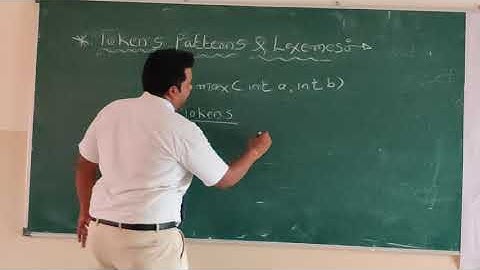 * Tokens Patterns & Lexemes :→
max ( int a , int b )
Tokens